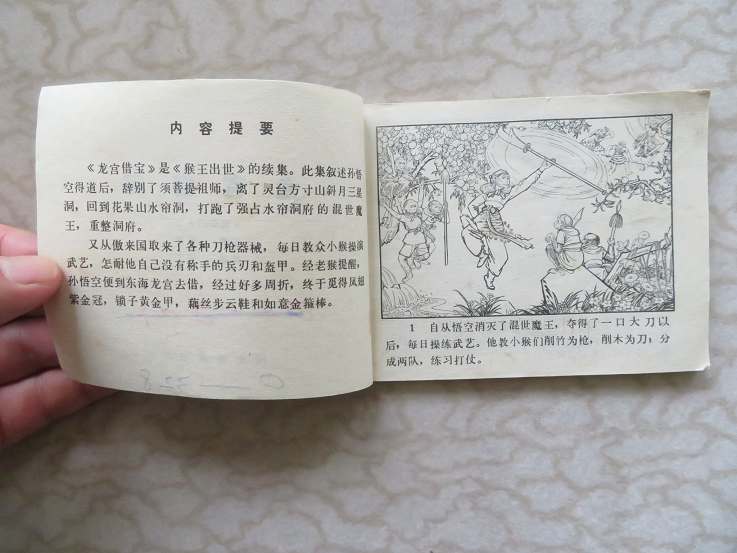 内容提要
《龙宫借宝》是《猴王出世》的续集。此集叙述孙悟
空得道后，辞别了须菩提祖师，离了灵台方寸山斜月三星
洞，回到花果山水帘洞，打跑了强占水帘洞府的混世魔
王，重整洞府。
又从傲来国取来了各种刀枪器械，每日教众小猴操演
武艺，怎耐他自己没有称手的兵刃和盔甲。经老猴提醒，
孙悟空便到东海龙宫去借，经过好多周折，终于觅得凤翅
紫金冠，锁子黄金甲，藕丝步云鞋和如意金箍棒。
1 自从悟空消灭了混世魔王，夺得了一口大刀以
后，每日操练武艺。他教小猴们削竹为枪，削木为刀；分
成两队，练习打仗。